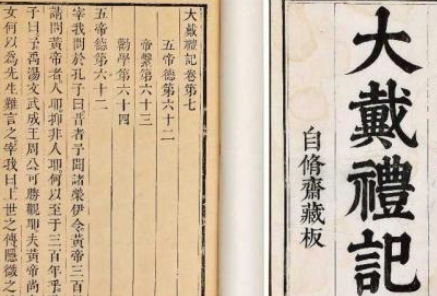 大戴禮記
自脩齋藏板
大戴禮記卷第七
五帝德第六十二
帝繫第六十三
勸學第六十四
五帝德第六十二
宰我問於孔子曰昔者予聞諸榮伊令黃帝三百
請問黃帝者人耶抑非人耶何以至于三百年乎
子曰予禹湯文武成王周公可勝觀耶夫黃帝尚
女何以爲先生難言之宰我曰上世之傳隱微之